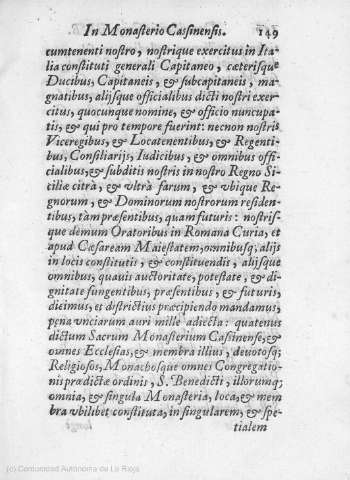 In Monasterio Cassinensis. 149
cumtenenti nostro, nostrique exercitus in Ita
lia constituti generali Capitaneo, cæterisque
Ducibus, Capitaneis, & subcapitaneis, ma-
gnatibus, alijsque officialibus dicti nostri exer-
citus, quocunque nomine, & officio nuncupa-
tis, & qui pro tempore fuerint: necnon nostris
Viceregibus, & Locatenentibus, & Regenti-
bus, Consiliarijs, Iudicibus, & omnibus offi-
cialibus, & subditis nostris in nostro Regno Si-
ciliæ citrà, & vltrà farum, & vbique Re-
gnorum, & Dominorum nostrorum residen-
tibus, tàm præsentibus, quam futuris: nostris-
que demum Oratoribus in Romana Curia, et
apud Cæsaream Maiestatem; omnibusq; alijs
in locis constitutis, & constituendis, alijsque
omnibus, quauis auctoritate, potestate, & di-
gnitate fungentibus, præsentibus, & futuris,
dicimus, et districtius præcipiendo mandamus,
pena vnciarum auri mille adiecta: quatenus
dictum Sacrum Monasterium Cassinense, &
omnes Ecclesias, & membra illius, deuotosq;
Religiosos, Monachosque omnes Congregatio-
nis prædictæ ordinis, S. Benedicti, illorumq;
omnia, & singula Monasteria, loca, & mem
bra vbilibet constituta, in singularem, & spe-
tialem
(c) Comunidad Autónoma de La Rioja